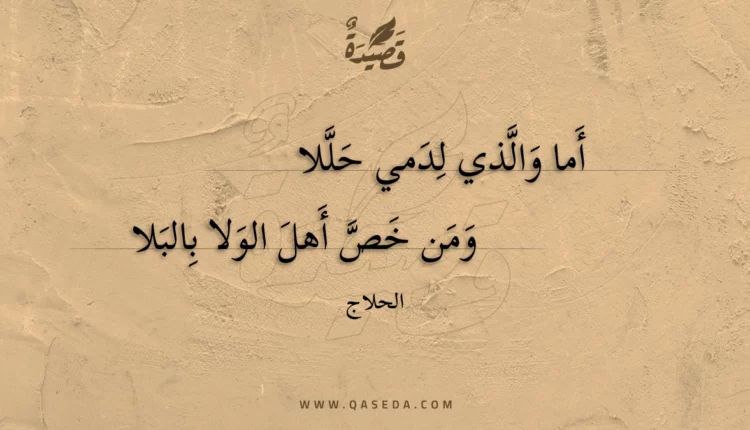 قَصِيْدَةٌ
أَما وَالَّذي لِدَمي حَلَّلا
وَمَن خَصَّ أَهلَ الوَلا بِالبَلا
الحلاج
WWW.QASEDA.COM